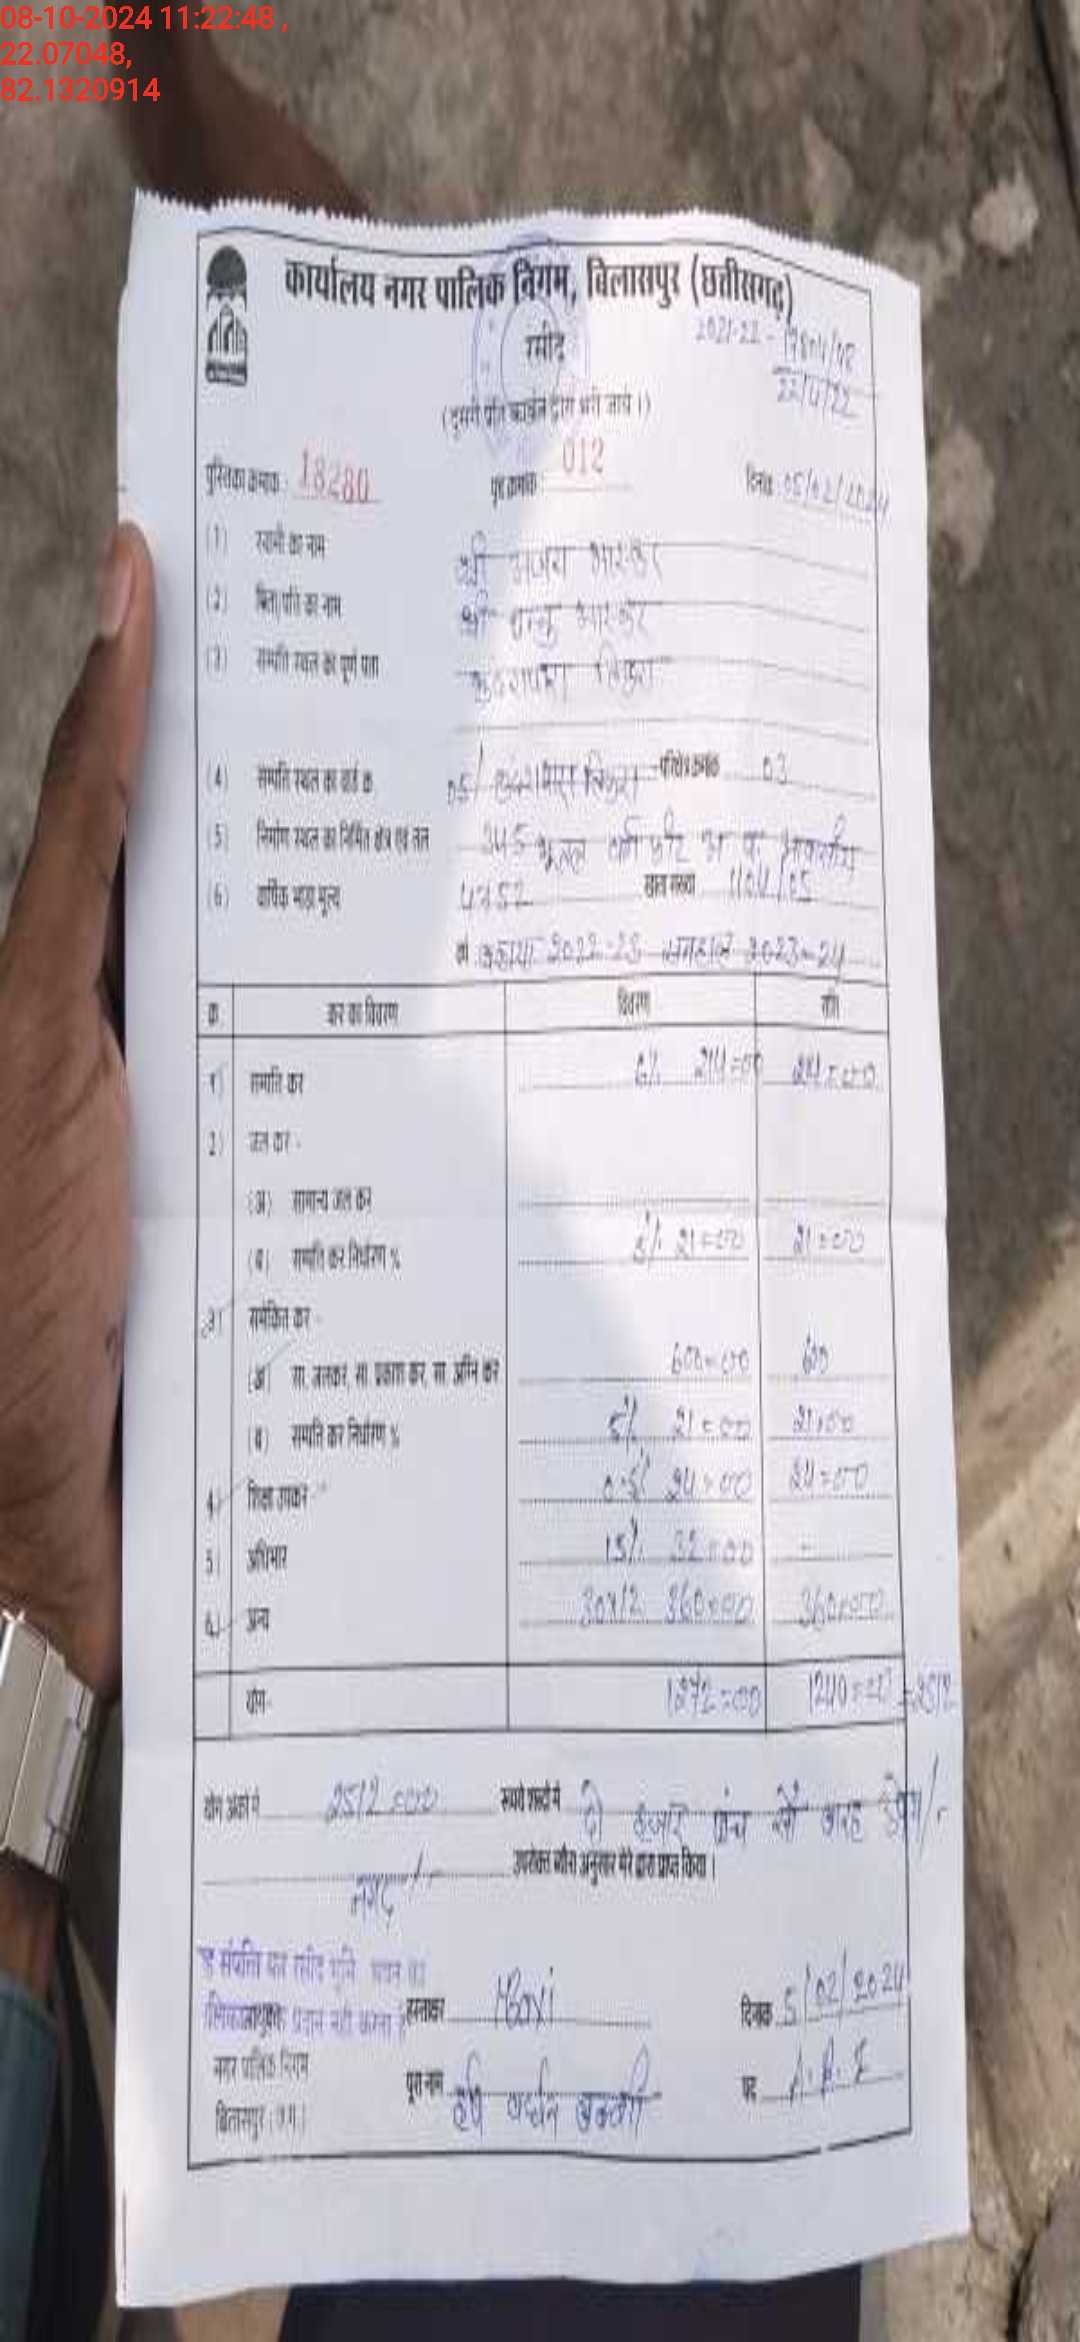 08-10-2024 11:22:48 ,
22.07048,
82.1320914
कार्यालय नगर पालिक निगम, बिलासपुर (छत्तीसगढ़)
रसीद
2021-22 -
22/4/22
(दूसरी प्रति कार्बन द्वारा भरी जावे।)
पुस्तिका क्रमांक : 18280 पृष्ठ क्रमांक : 012 दिनांक : 05/02/2024
(1) स्वामी का नाम श्री भास्कर
(2) पिता/पति का नाम श्री भास्कर
(3) सम्पत्ति स्थल का पूर्ण पता
(4) सम्पत्ति स्थल का वार्ड क्र. 05/ परिक्षेत्र क्रमांक 03
(5) निर्माण स्थल का निर्मित क्षेत्र एवं तल 345
(6) वार्षिक भाड़ा मूल्य खाता संख्या 1104/05
वर्ष बकाया 2022-23 2023-24
क्र. कर का विवरण विवरण राशि
1) सम्पत्ति कर 6%
2) जल कर -
(अ) सामान्य जल कर
(ब) सम्पत्ति कर निर्धारण % 5% 21=00 21=00
3) समेकित कर -
(अ) सा. जलकर, सा. प्रकाश कर, सा. अग्नि कर 600=00 600
(ब) सम्पत्ति कर निर्धारण % 5% 21=00 21=00
4) शिक्षा उपकर - 24=00 24=00
5) अधिभार 15% 32=00 -
6) अन्य 30x12 360=00 360=00
योग- 1272=00 1240=00 =2512
योग अंकों में 2512=00 रूपये शब्दों में दो हजार पांच सौ बारह रुपये/-
उपरोक्त ब्यौरा अनुसार मेरे द्वारा प्राप्त किया।
नगद/-
संपत्ति कर रसीद भूमि भवन का
प्रदान नहीं करता है
हस्ताक्षर दिनांक 5/02/2024
नगर पालिक निगम
पूरा नाम हर्ष वर्धन पद
बिलासपुर (छ.ग.)